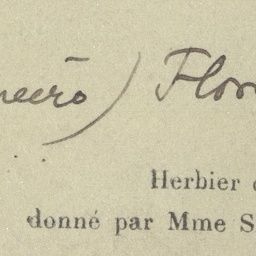 neeiro) Flor
Herbier
donné par Mme S